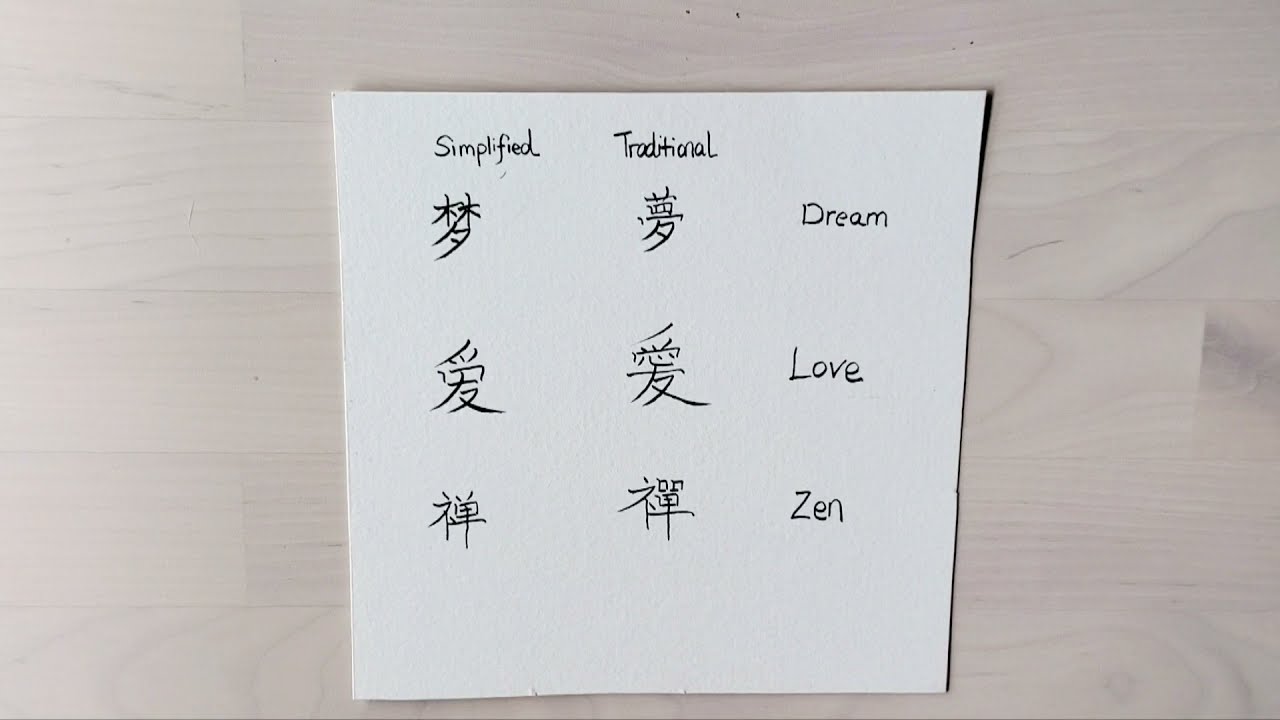 Simplified Traditional
梦 夢 Dream
爱 愛 Love
禅 禪 Zen